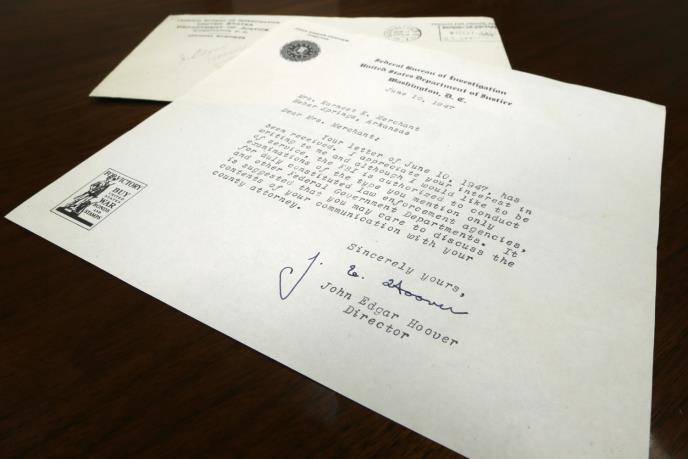 FEDERAL BUREAU OF INVESTIGATION
UNITED STATES
DEPARTMENT OF JUSTICE
WASHINGTON, D. C.
OFFICIAL BUSINESS
JOHN EDGAR HOOVER
DIRECTOR
Federal Bureau of Investigation
United States Department of Justice
Washington, D. C.
June 16, 1947
Mrs. Earnest K. Merchant
Heber Springs, Arkansas
Dear Mrs. Merchant,
Your letter of June 10, 1947, has
been received. I appreciate your interest in
writing to me and although I would like to be
of service, the FBI is authorized to conduct
examinations of the type you mention only
for duly constituted law enforcement agencies,
and other Federal Government Departments. It
is suggested that you may care to discuss the
contents of your communication with your
county attorney.
Sincerely yours,
J. E. Hoover
John Edgar Hoover
Director
FOR VICTORY
BUY
UNITED
STATES
WAR
BONDS
AND
STAMPS